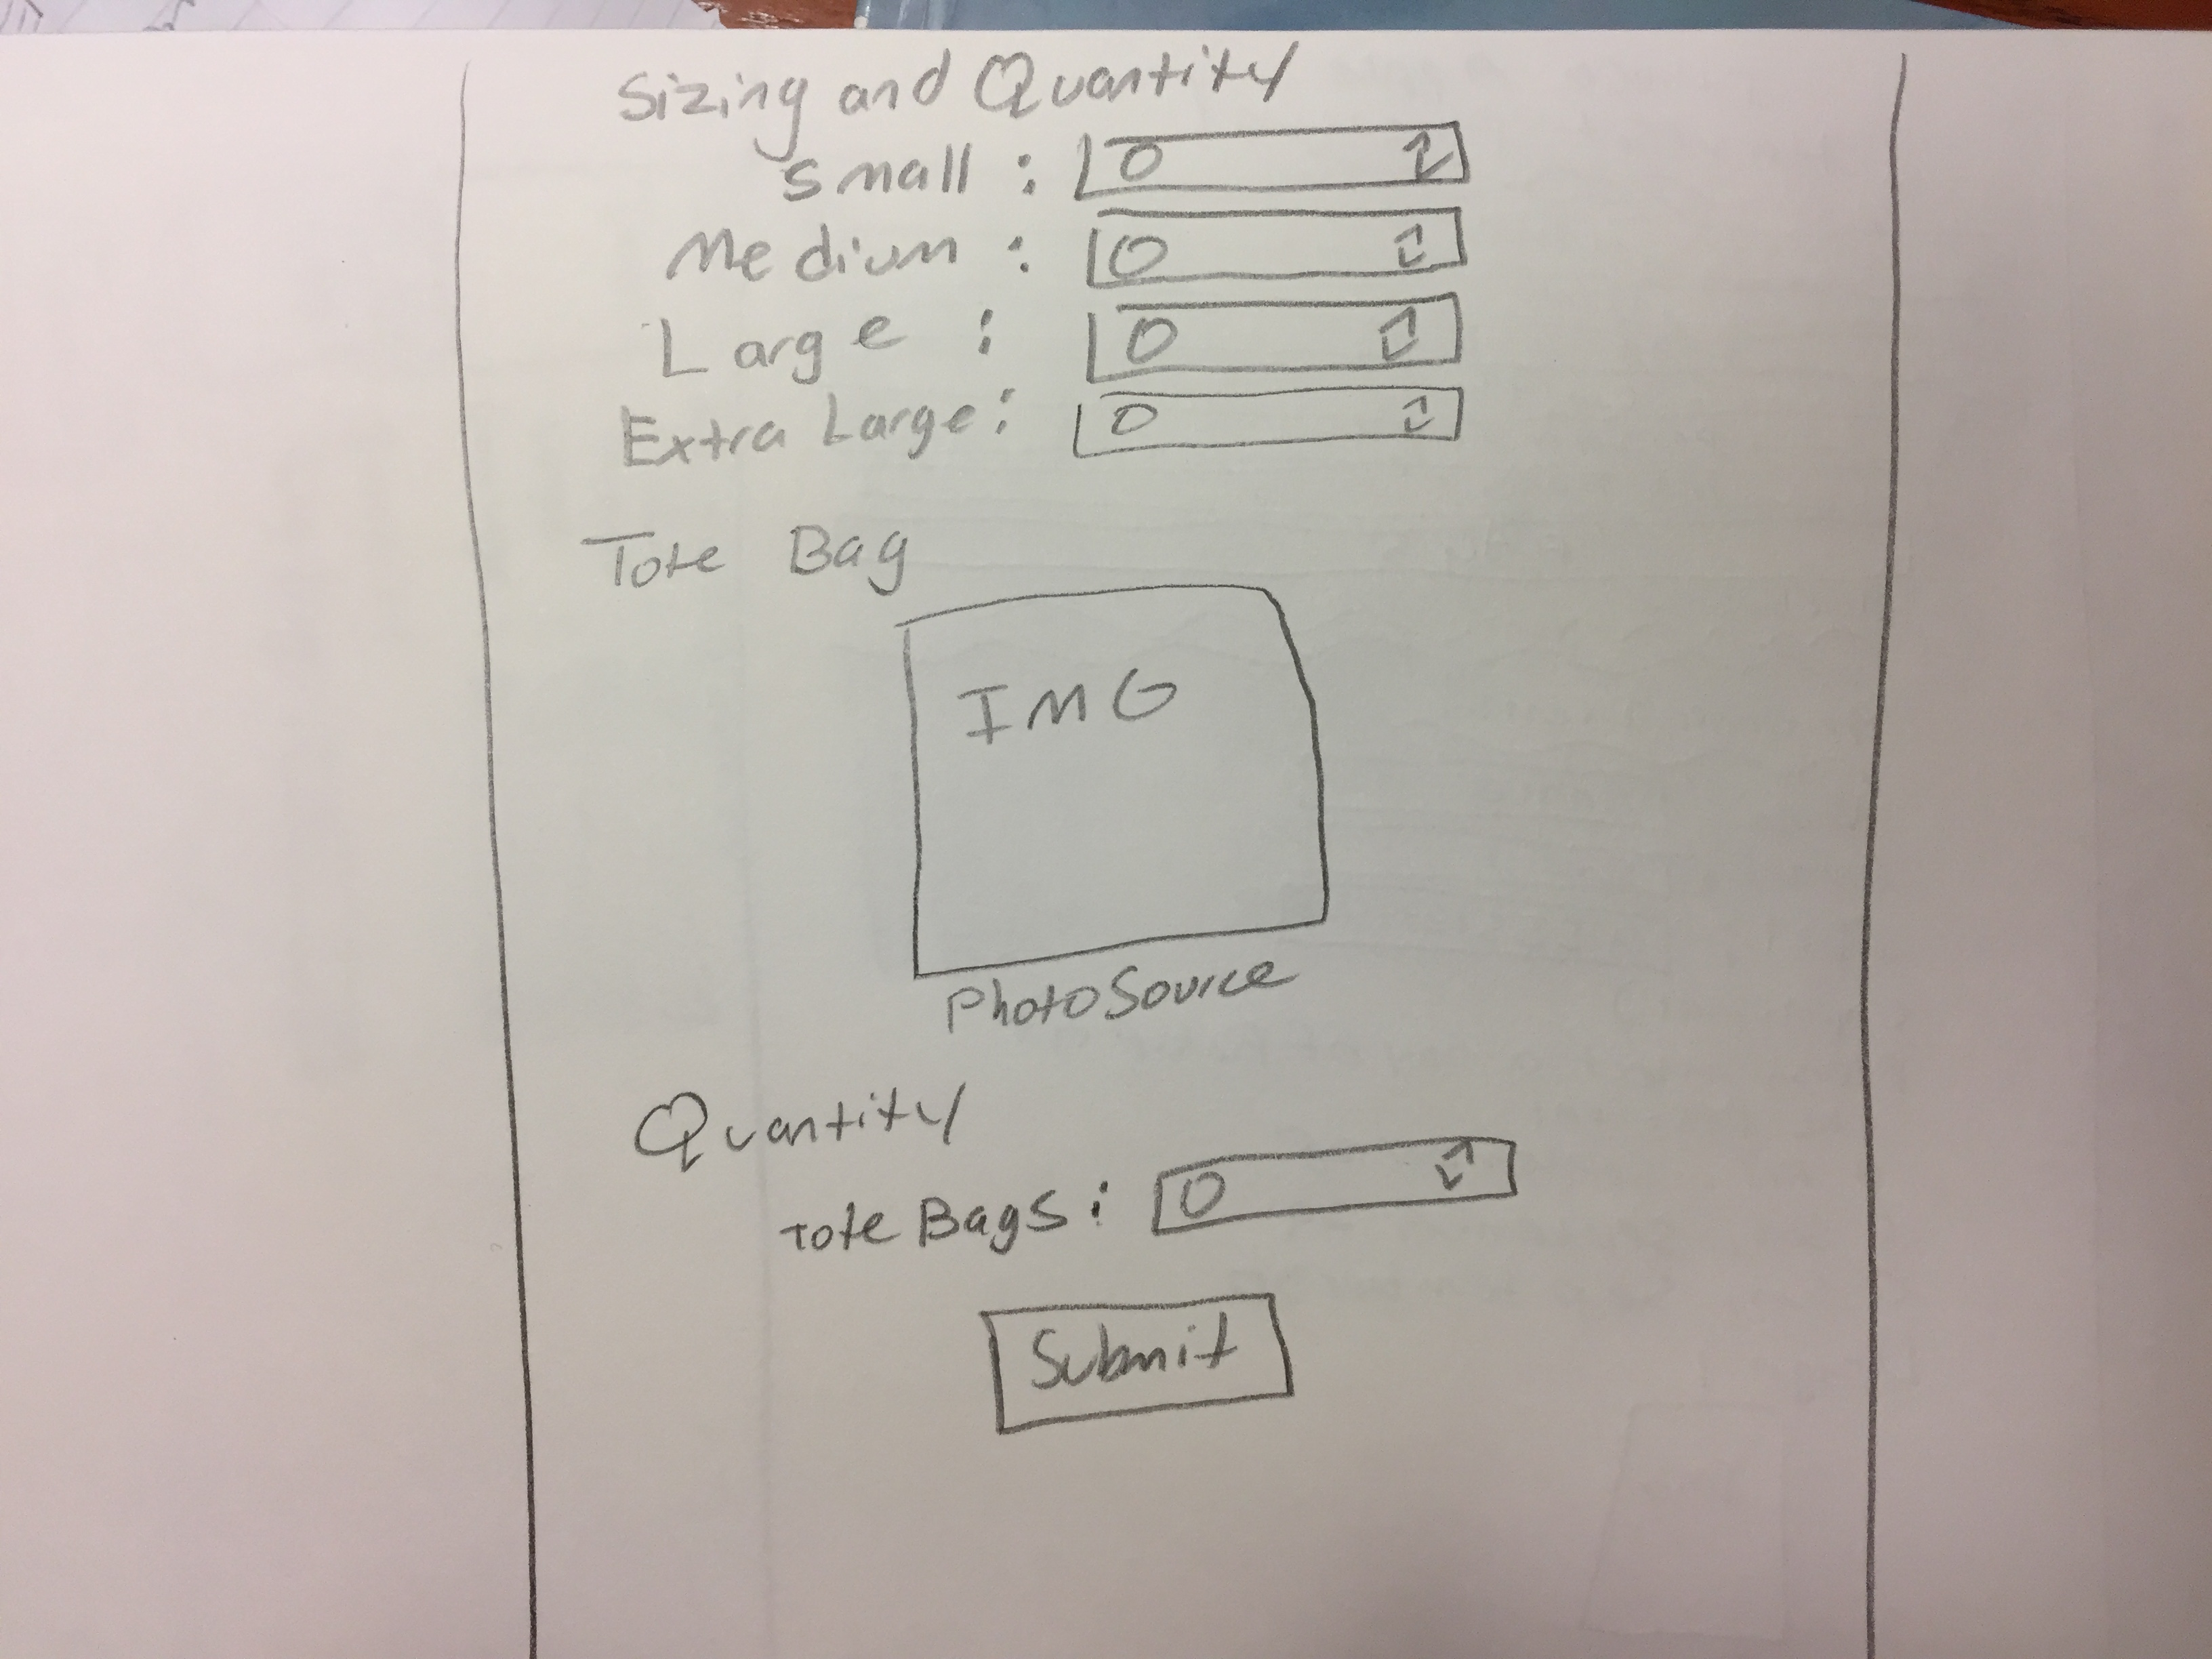 Sizing and Quantity
Small : 0
Medium : 0
Large : 0
Extra Large: 0
Tote Bag
IMG
PhotoSource
Quantity
Tote Bags: 0
Submit